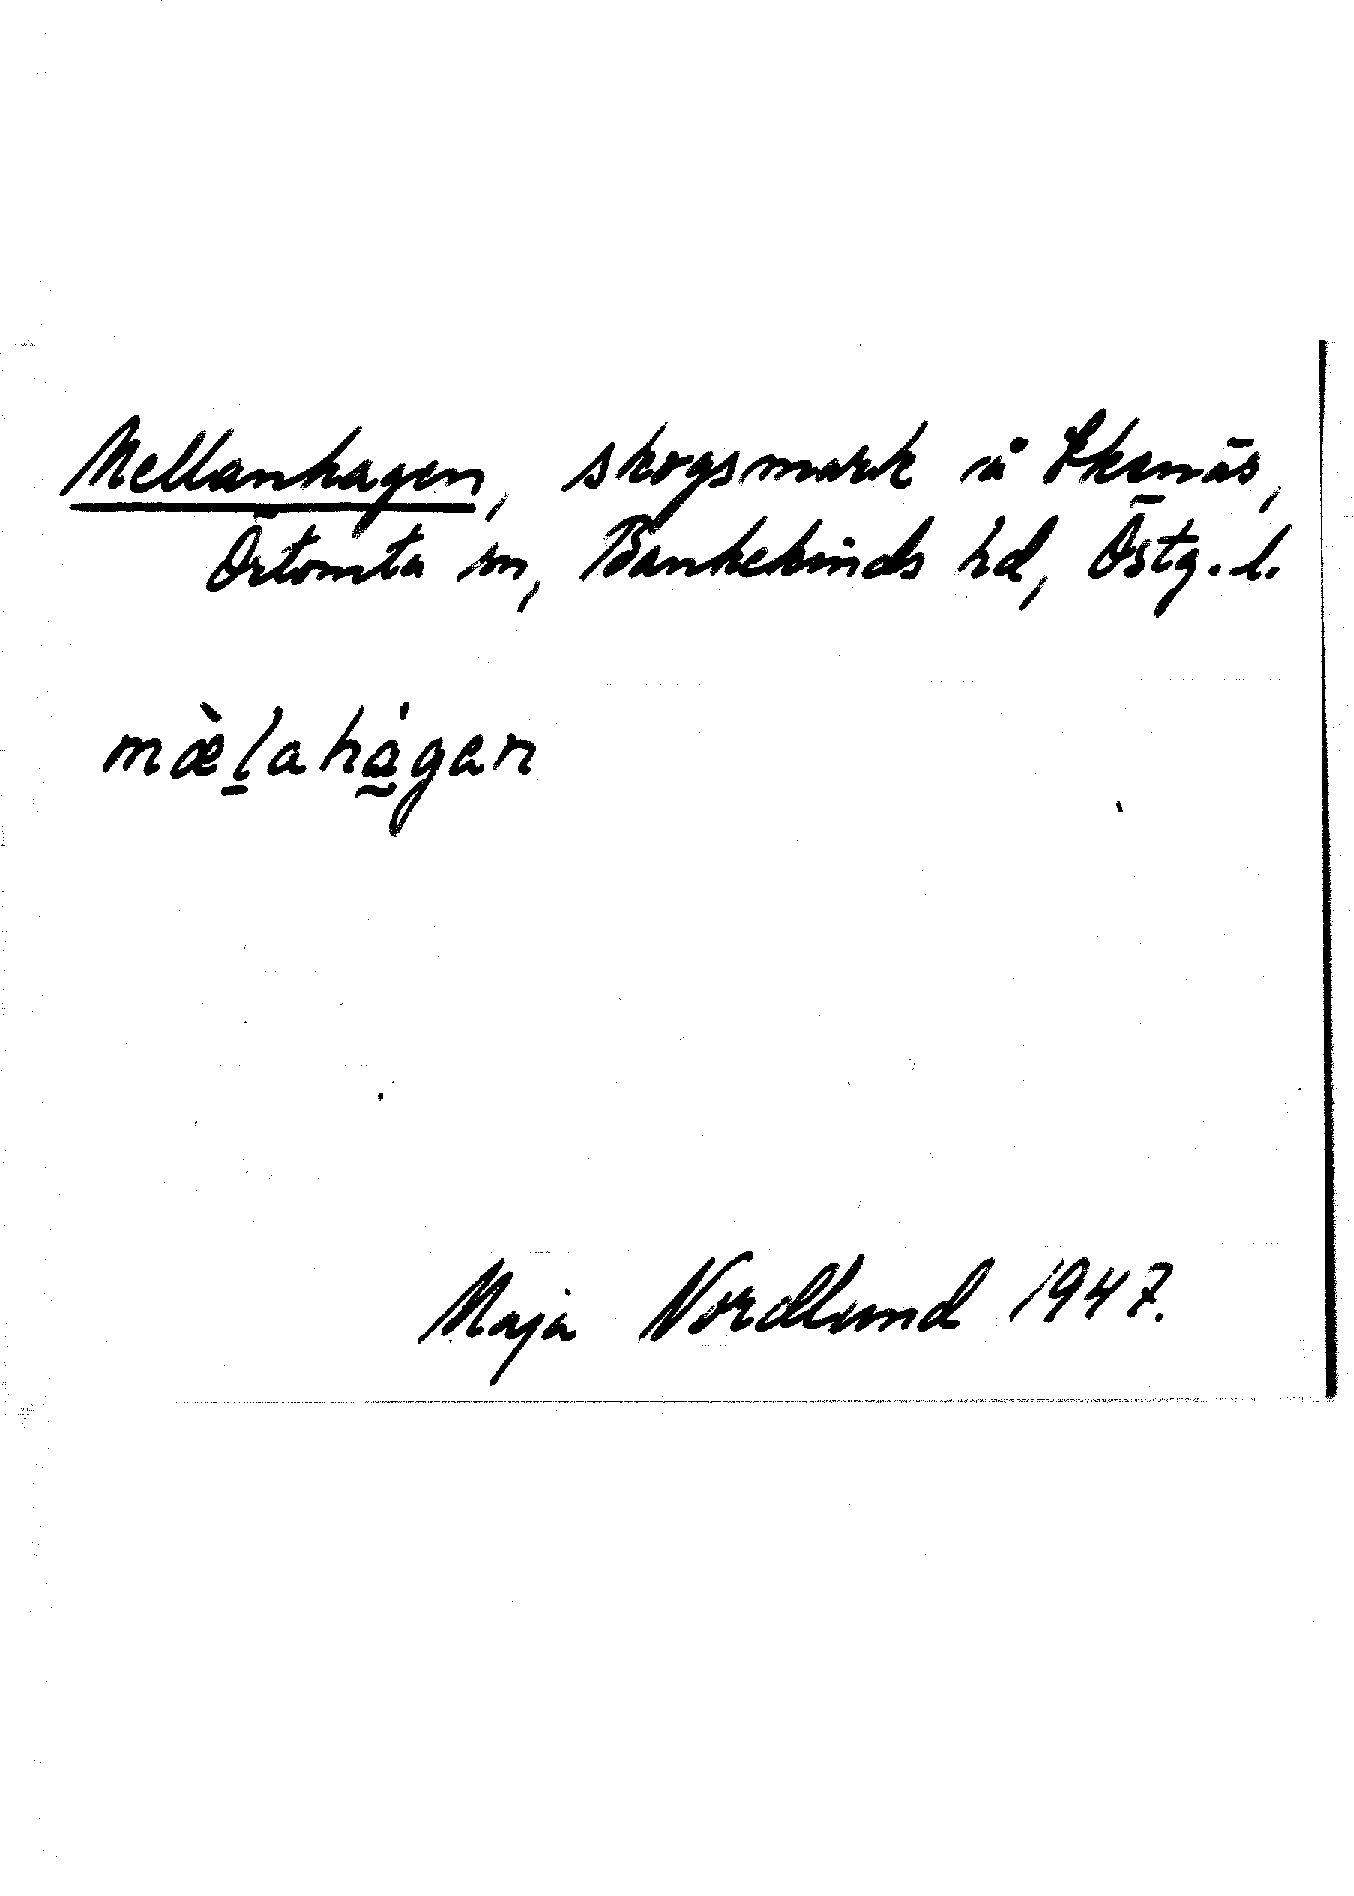 Mellanhagen, skogsmark å Ekenäs,
Örtomta sn, Bankekinds hd, Östg. l.
mæ̀l̠ahá̰gan
Maja Nordlund 1947.